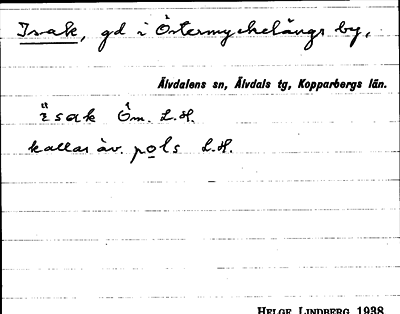 Isak, gd i Östermyckelängs by,
Älvdalens sn, Älvdals tg, Kopparbergs län.
ïsak Öm. L.H.
kallas äv. pols L.H.
HELGE LINDBERG 1938